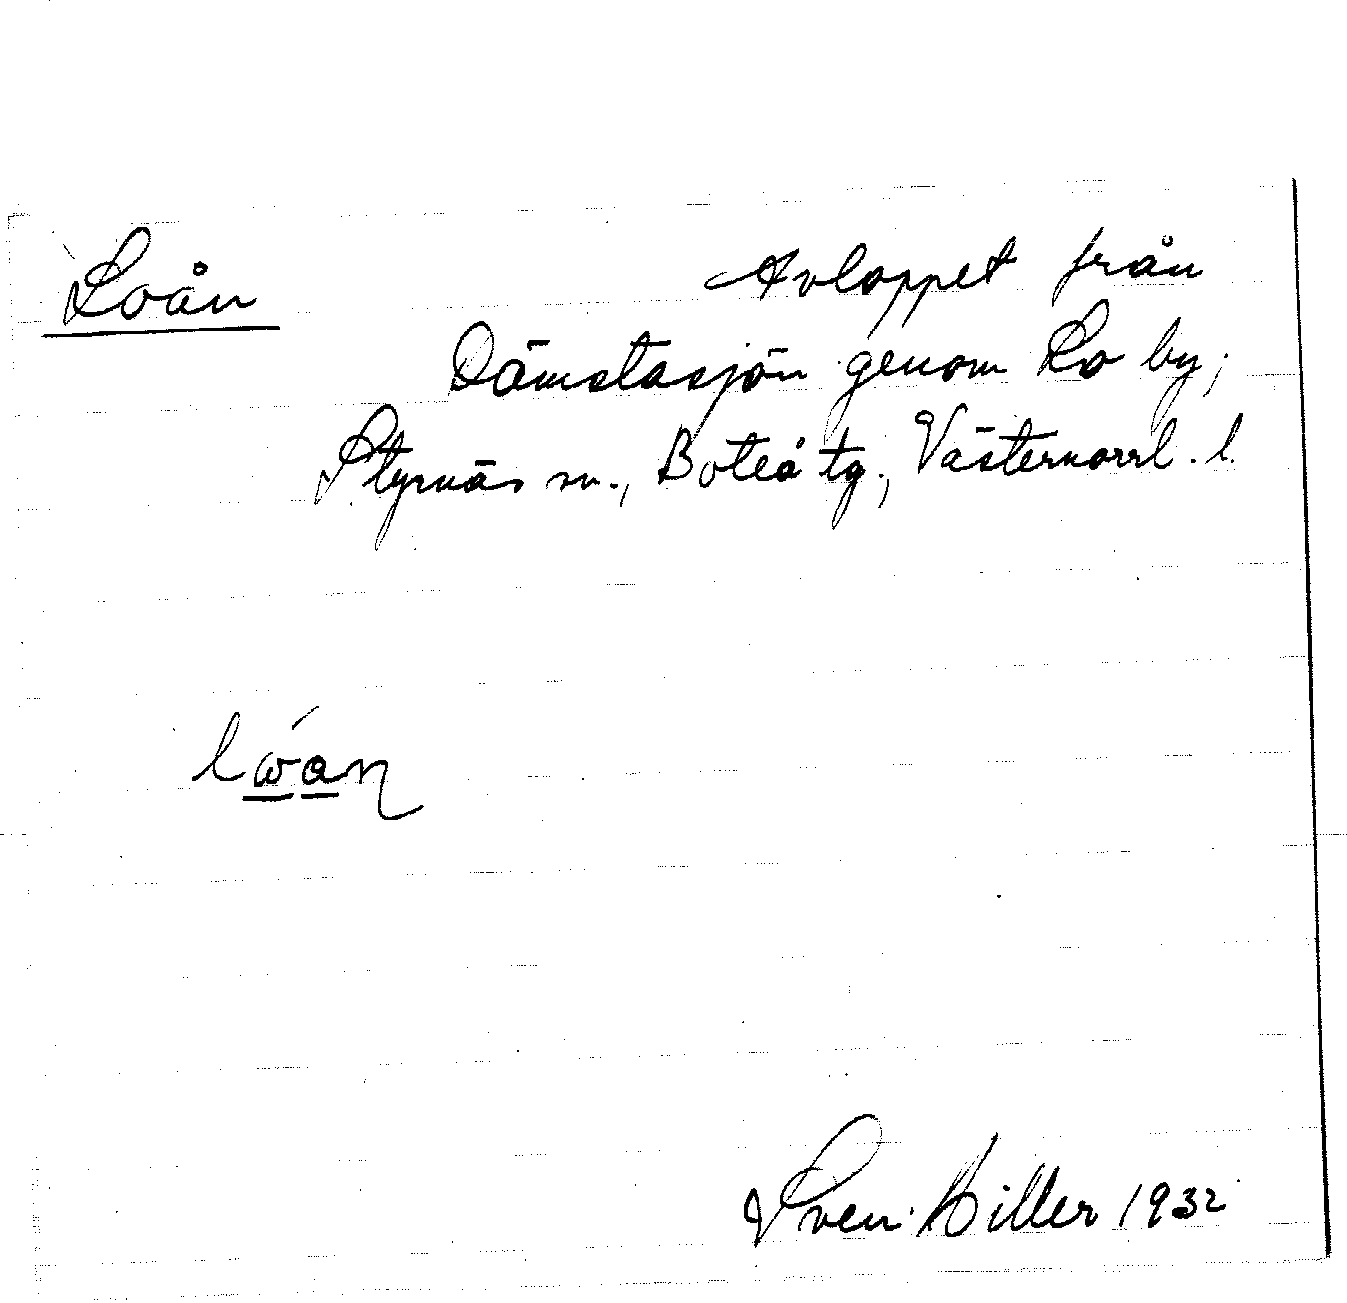 Loån
Avloppet från
Dämstasjön genom Lo by;
Styrnäs sn., Boteå tg.; Västernorrl. l.
lω̄́an
Sven Hiller 1932